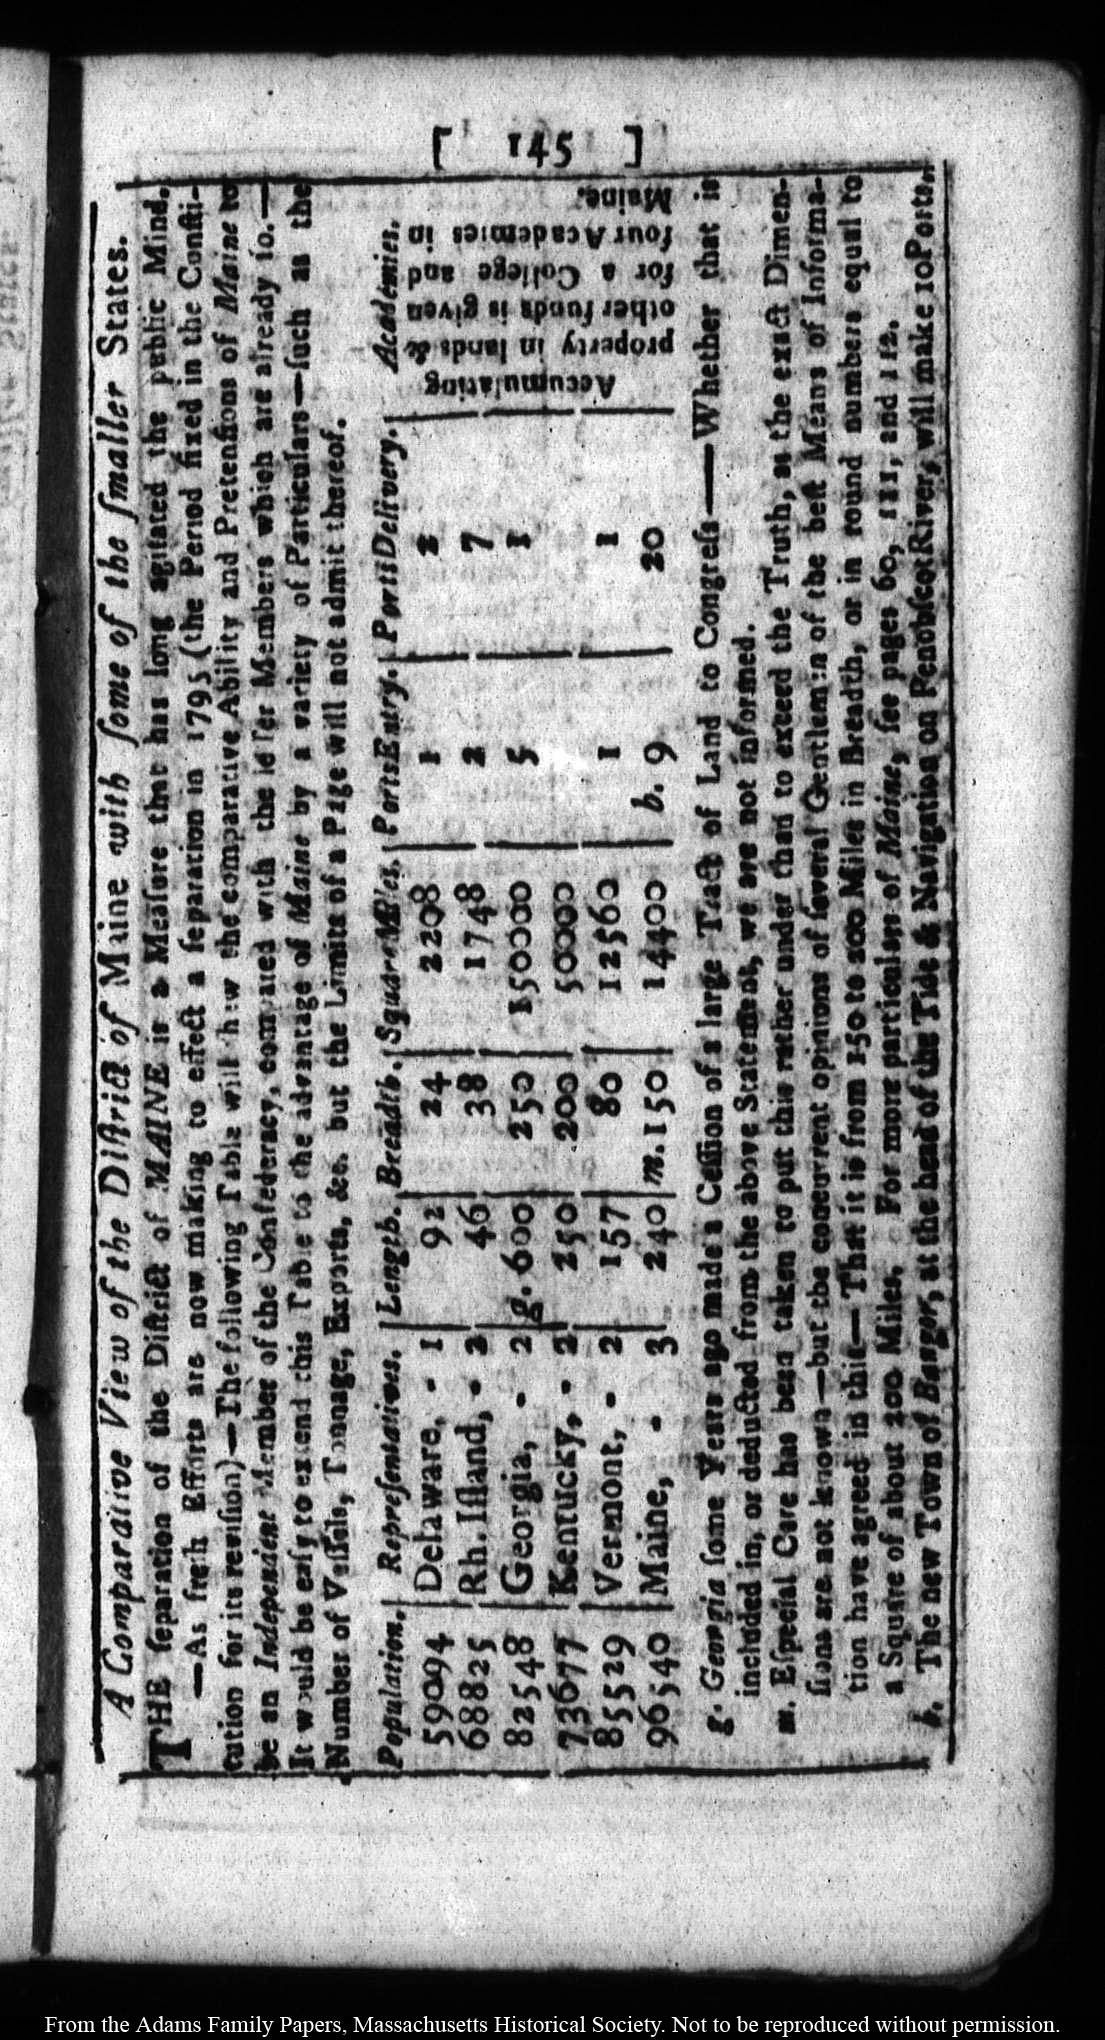 [ 145 ]
A Comparative View of the Diſtrict of Maine with ſome of the ſmaller States.
THE ſeparation of the Diſtrict of MAINE is a Meaſure that has long agitated the public Mind.
—As freſh Efforts are now making to effect a ſeparation in 1795 (the Period fixed in the Conſti-
tution for its reviſion)—The following Table will ſhew the comparative Ability and Pretenſions of Maine to
be an Independent Member of the Confederacy, compared with the leſſer Members which are already ſo.—
It would be eaſy to extend this Table to the advantage of Maine by a variety of Particulars—ſuch as the
Number of Veſſels, Tonnage, Exports, &c. but the Limits of a Page will not admit thereof.
Population. Repreſentatives. Length. Breadth. Square Miles. Ports Entry. Ports Delivery. Academies.
59094 Delaware, - 1 92 24 2208 1 2
68825 Rh. Iſland, - 2 46 38 1748 2 7
82548 Georgia, - 2 g. 600 250 150000 5 1
73677 Kentucky, - 2 250 200 50000
85529 Vermont, - 2 157 80 12560 1 1
96540 Maine, - 3 240 m. 150 14400 b. 9 20
Accumulating
property in lands &
other funds is given
for a College and
four Academies in
Maine.
g. Georgia ſome Years ago made a Ceſſion of a large Tract of Land to Congreſs—Whether that is
included in, or deducted from the above Statement, we are not informed.
m. Eſpecial Care has been taken to put this rather under than to exceed the Truth, as the exact Dimen-
ſions are not known—but the concurrent opinions of ſeveral Gentlemen of the beſt Means of Informa-
tion have agreed in this—That it is from 150 to 200 Miles in Breadth, or in round numbers equal to
a Square of about 200 Miles. For more particulars of Maine, ſee pages 60, 111, and 112.
b. The new Town of Bangor, at the head of the Tide & Navigation on Penobſcot River, will make 10 Ports.
From the Adams Family Papers, Massachusetts Historical Society. Not to be reproduced without permission.